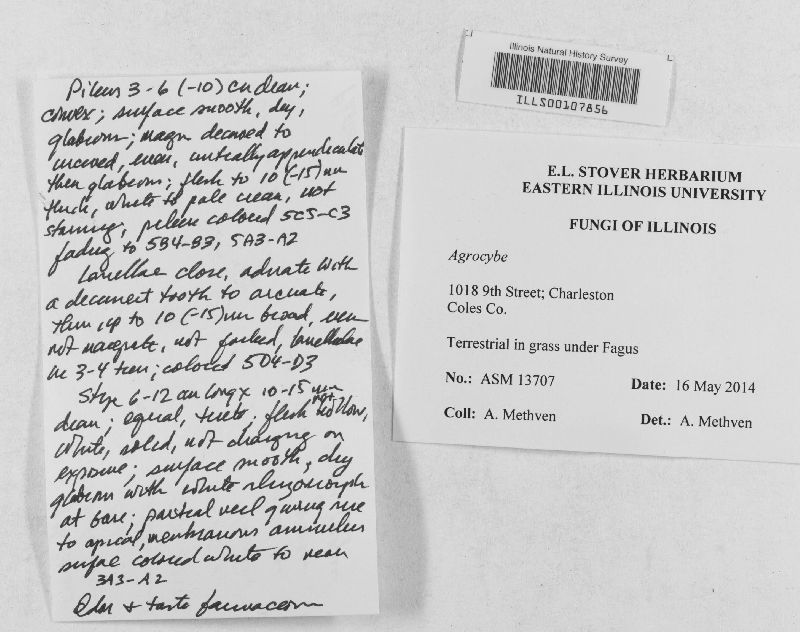 Pileus 3-6 (-10) cm diam;
convex; surface smooth, dry,
glabrous; margin decurved to
incurved, even, initially appendiculate
then glabrous; flesh to 10 (-15) mm
thick, white to pale cream, not
staining; pileus colored 5C5-C3
fading to 5B4-B3, 5A3-A2
Lamellae close, adnate with
a decurrent tooth to arcuate,
thin, up to 10 (-15) mm broad, even
not marginate, not forked, lamellulae
in 3-4 tiers; colored 5D4-D3
Stipe 6-12 cm long x 10-15 mm
diam; equal, terete; flesh not hollow,
white, solid, not changing on
exposure; surface smooth, dry
glabrous with white rhizomorphs
at base; partial veil giving rise
to apical, membranous annulus
surface colored white to near
3A3-A2
Odor & taste farinaceous
Illinois Natural History Survey
ILLS00107856
E.L. STOVER HERBARIUM
EASTERN ILLINOIS UNIVERSITY
FUNGI OF ILLINOIS
Agrocybe
1018 9th Street; Charleston
Coles Co.
Terrestrial in grass under Fagus
No.: ASM 13707 Date: 16 May 2014
Coll: A. Methven Det.: A. Methven